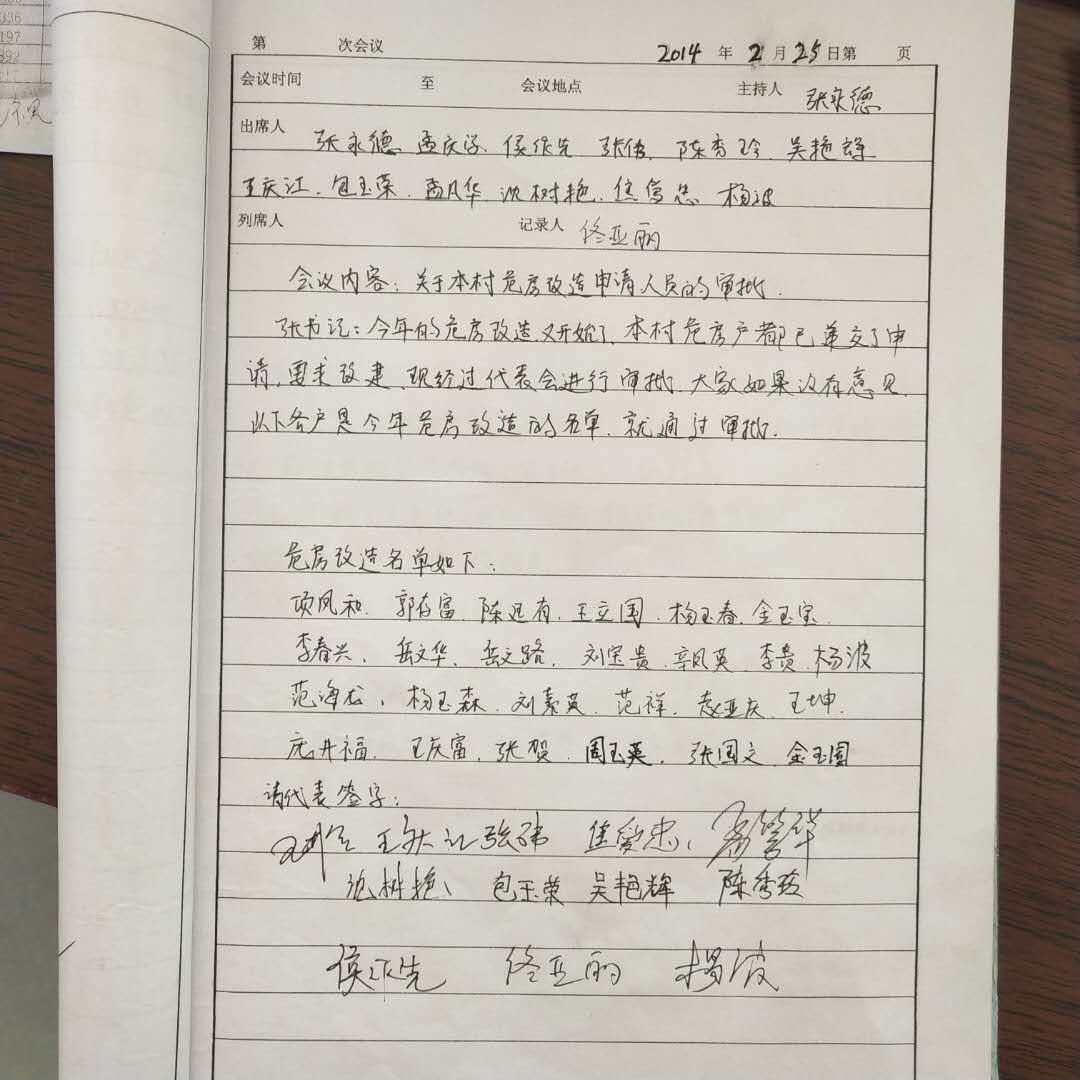 336
197
892
第 次会议 2014 年 2 月 25 日第 页
会议时间 至 会议地点 主持人 张永德
出席人 张永德 孟庆 侯作先 张伟 陈秀玲 吴艳辉
王庆江 包玉荣 孟凡华 沈树艳 焦 忠 杨波
列席人 记录人 佟亚丽
会议内容：关于本村危房改造申请人员的审批.
张书记：今年的危房改造又开始了、本村危房户都已递交了申
请，要求改建、现经过代表会进行审批、大家如果没有意见、
以下各户是今年危房改造的名单、就通过审批.
危房改造名单如下：
项凤和、郭存富、陈 有、王立国、杨玉春、金玉宝、
李春兴、岳文华、岳文路、刘宝贵、辛凤英、李贵、杨波
范海龙、杨玉森、刘素英、范祥、赵亚庆、王坤、
井福、王庆富、张贺、周玉英、张国文、金玉国
请代表签字：
王庆江 张伟 焦 忠、 华
沈树艳、 包玉荣 吴艳辉 陈秀玲
侯作先 佟亚丽 杨波